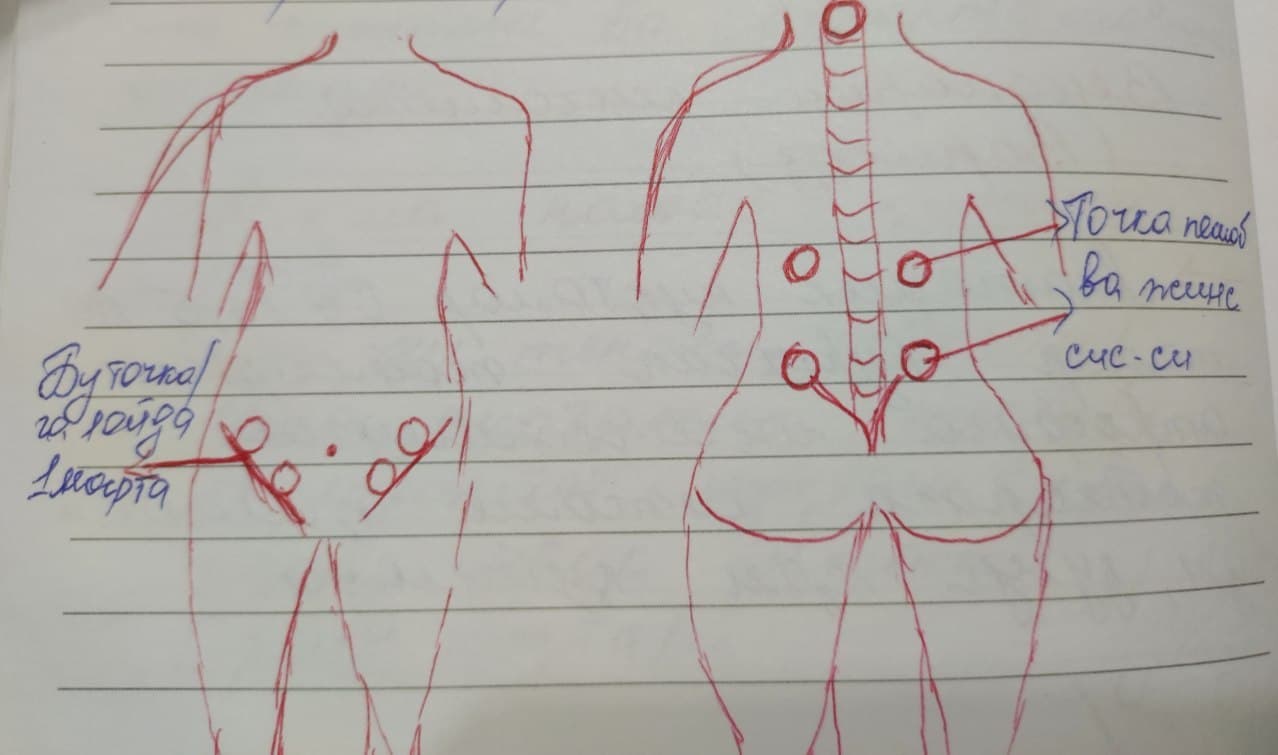 Бу точка/
га 1 ойда
1 марта
Точка пешоб
ва жинс
сис-си